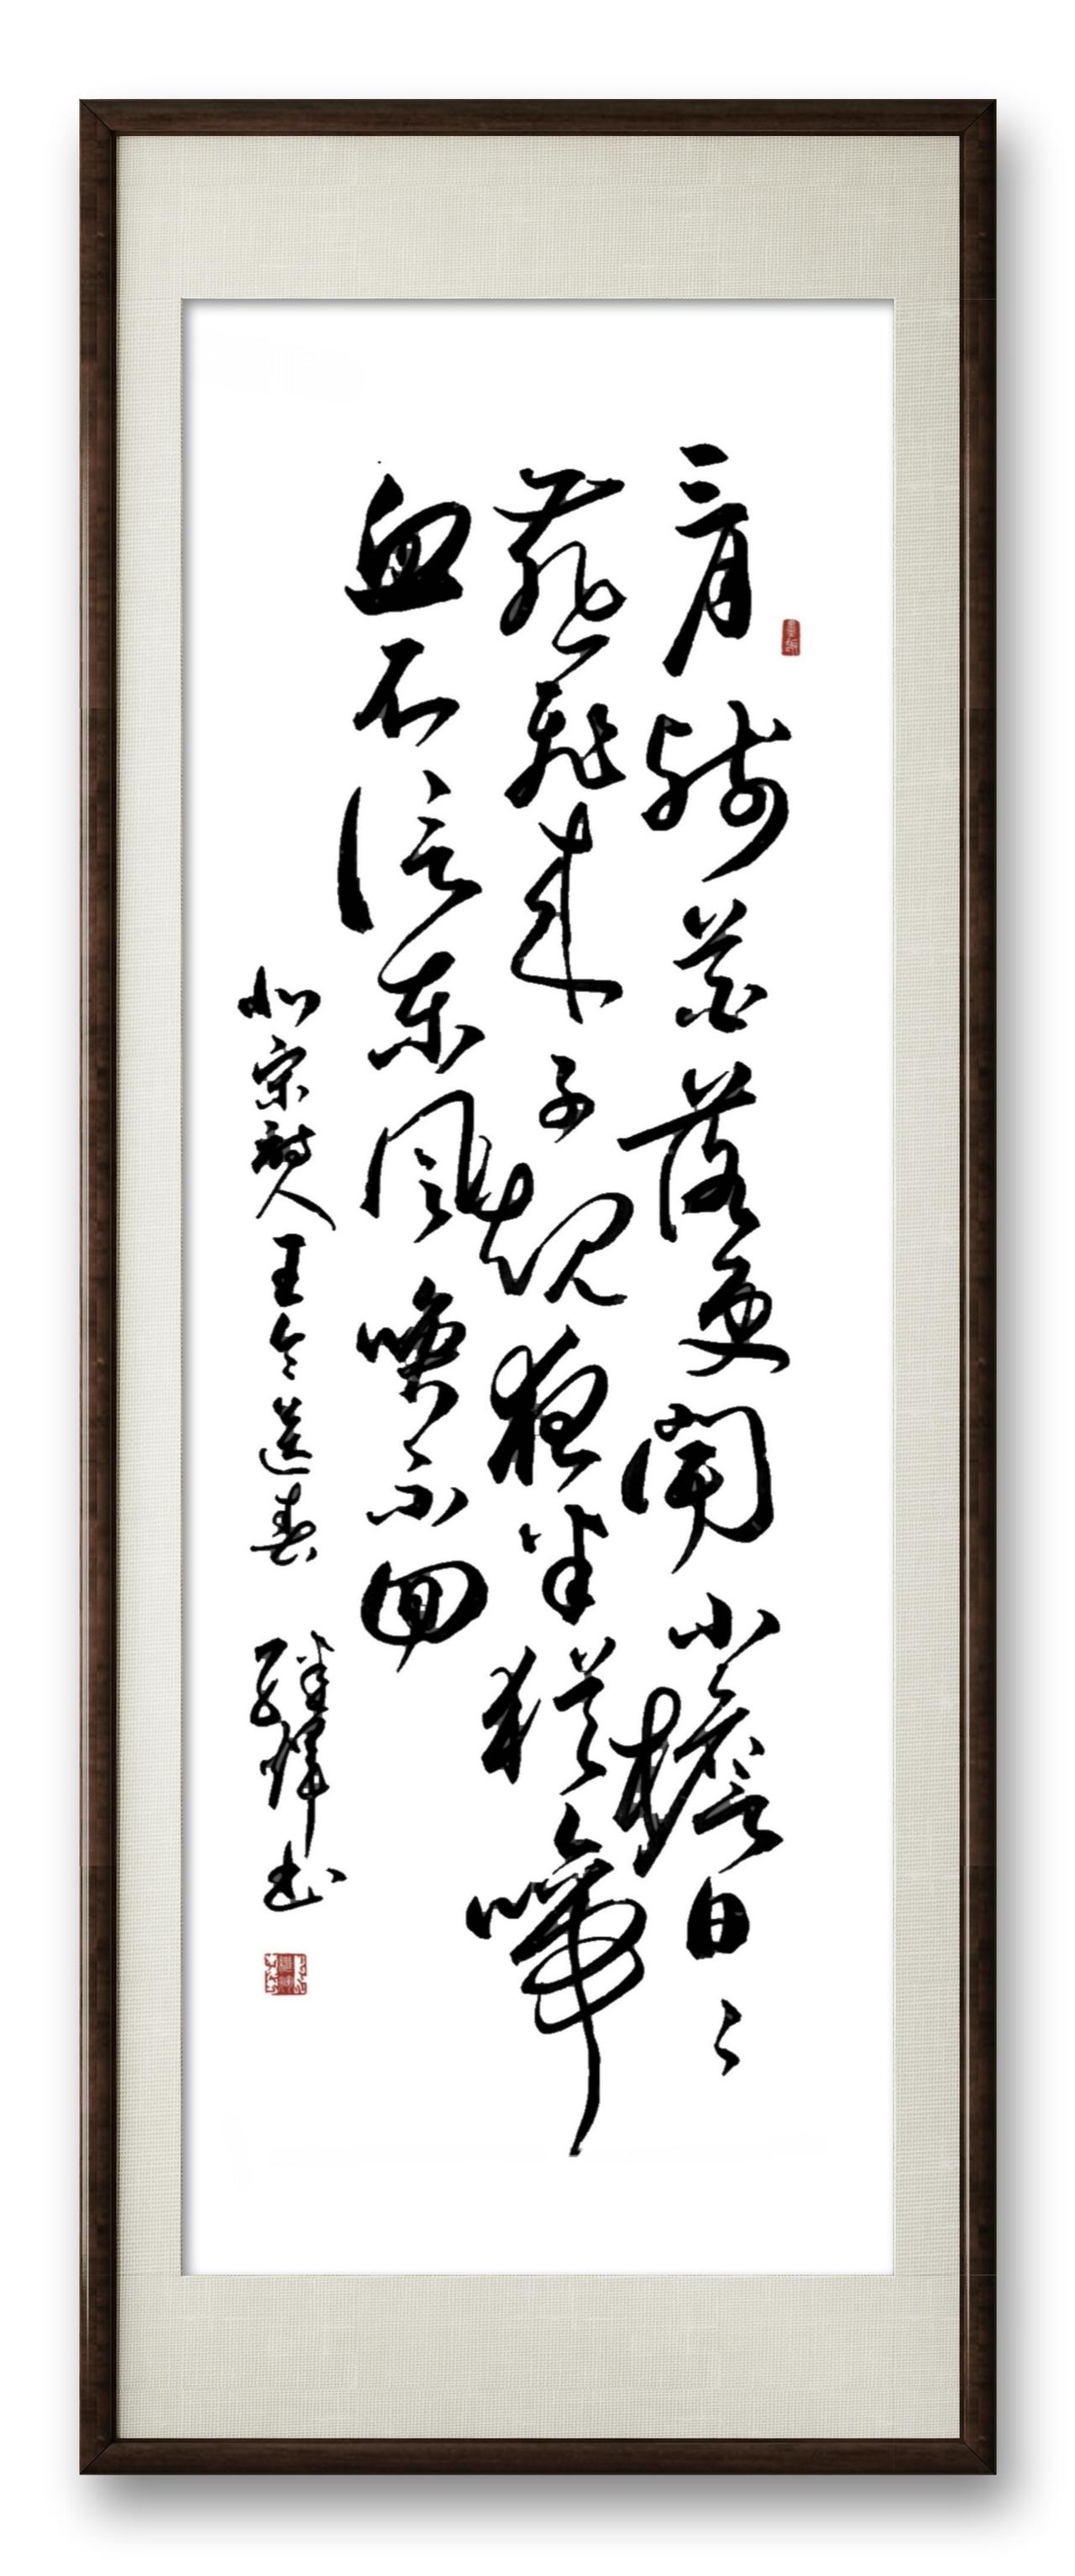 三月殘花落更開小檐日〻
燕飛来子規夜半猶啼
血不信東風喚不回
北宋詩人王令送春 書